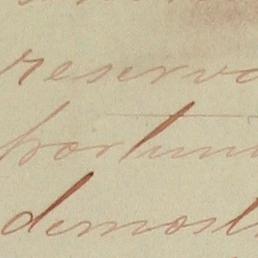 reserva
portuni
demost